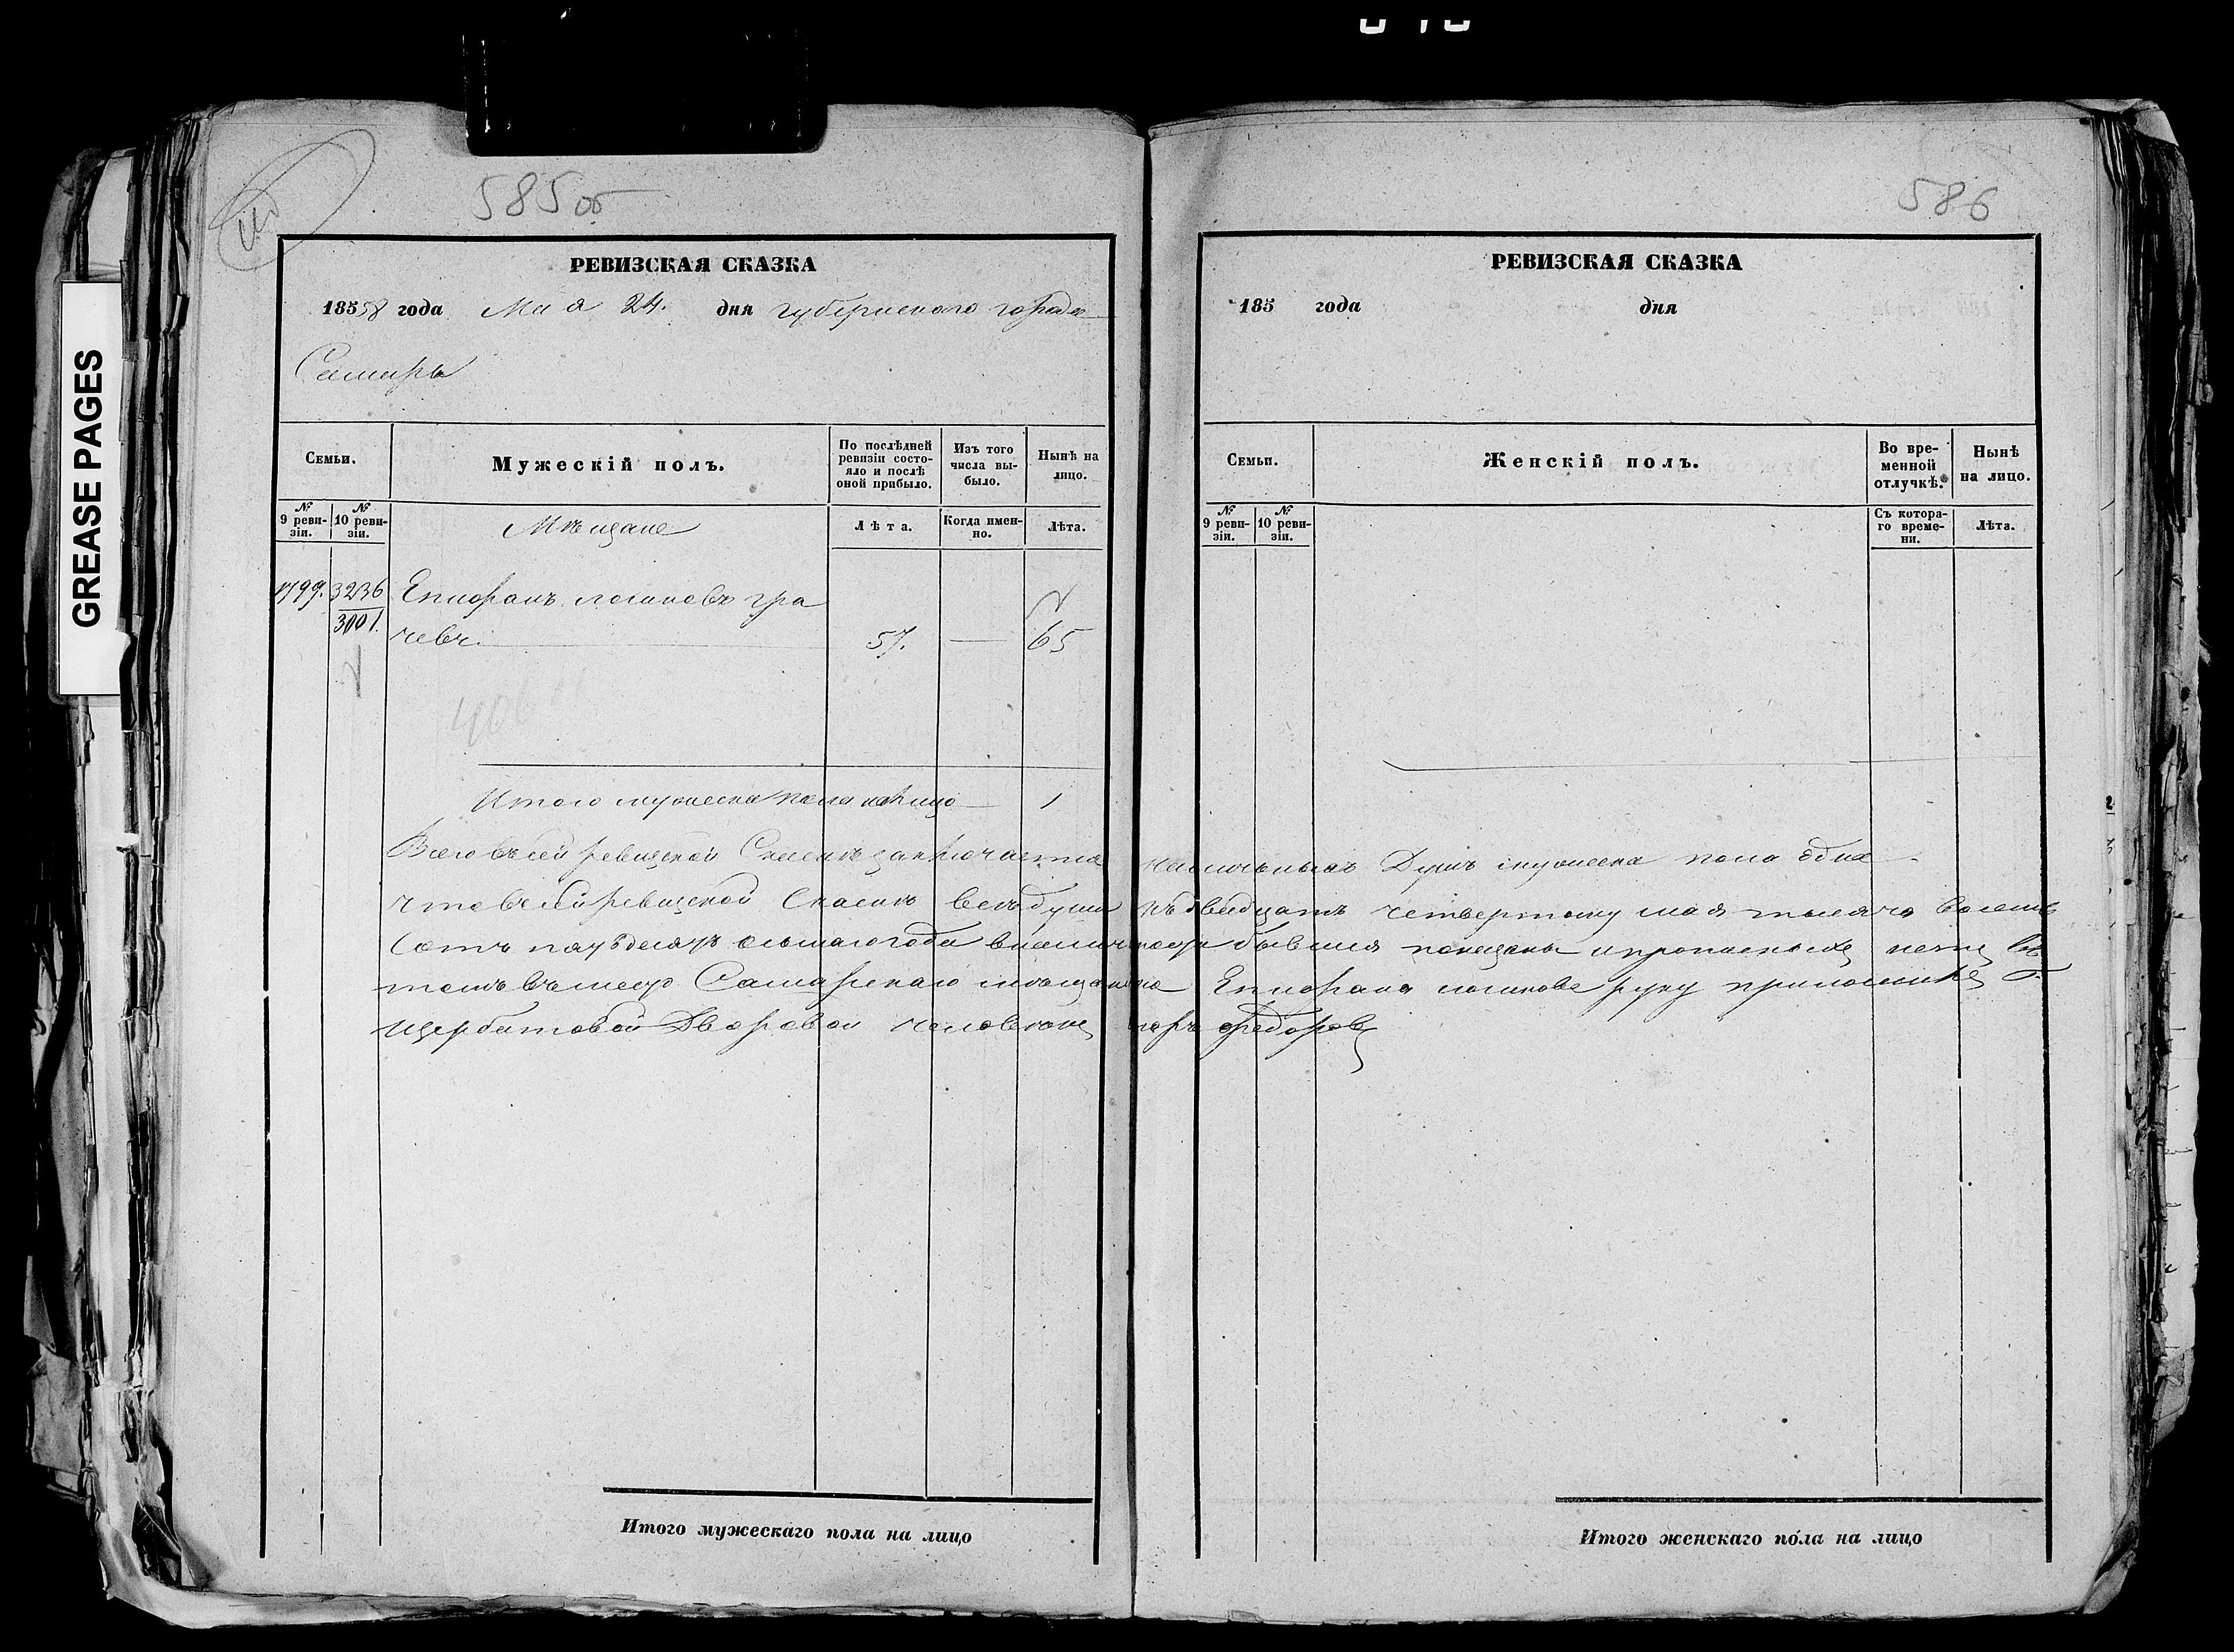 GREASE PAGES
585об
РЕВИЗСКАЯ СКАЗКА
18558 года Мая 24. дня губернского города
Самары
Семьи.
Мужескій полъ.
По послѣдней ревизіи состояло и послѣ оной прибыло.
Изъ того числа выбыло.
Нынѣ на лицо.
№ 9 ревизіи.
№ 10 ревизіи.
Мѣщане
Лѣта.
Когда именно.
Лѣта.
1799. 3236 гра
3001. чевъ 57. — 65
Итого мужеска пола налицо 1
586
РЕВИЗСКАЯ СКАЗКА
185 года дня
Семьи.
Женскій полъ.
Во временной отлучкѣ.
Нынѣ на лицо.
№ 9 ревизіи.
№ 10 ревизіи.
Съ котораго времени.
Лѣта.
Всего въ сей ревизской Сказкѣ заключается наличныхъ Душъ мужеска пола одна
что в сей ревизской Сказке все души къ двадцать четвертому мая тысяча восемь
сотъ года бывшия показаны и
томъ вместо Самарскаго мещанина руку приложилъ
Щербатовой Дворовой человекъ Федоровъ
Итого мужескаго пола на лицо
Итого женскаго пола на лицо